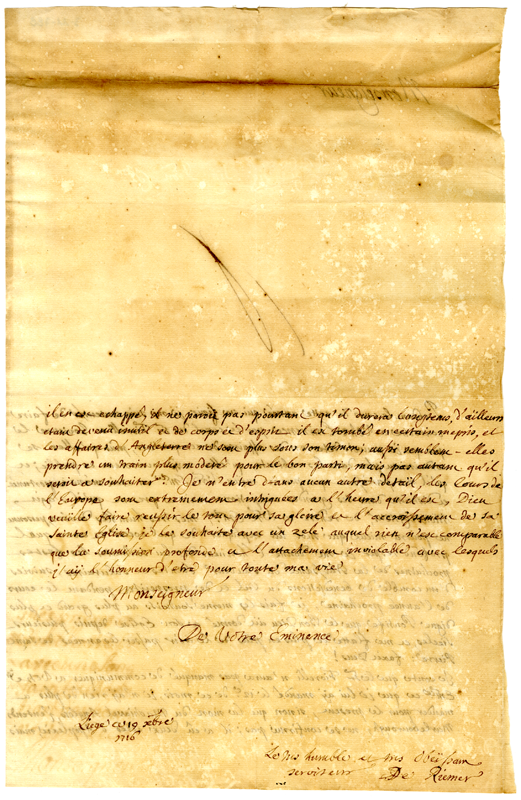 il en est echappé, et ne paroit pas pourtant qu'il durera longtems, d'ailleurs
etant devenu inutil et de corps et d'esprit il est tombé en certain mepris, et
les affaires d'Angleterre ne sont plus sous son timon; aussi semblent-elles
prendre un train plus moderé pour le bon parti, mais pas autant qu'il
seroit a souhaiter. Je n'entre dans aucun autre detail, les Cours de
l'Europe sont extremement intriguées a l'heure qu'il est, Dieu
veuille faire reussir le tout pour sa gloire et l'accroissement de sa
Sainte Eglise, je le souhaite avec un zele, auquel rien n'est comparable
que la soumission profonde et l'attachement inviolable avec lesquels
j'aÿ l'honneur d'etre pour toute ma vie
Monseigneur
De Votre Eminence
Liege ce 19 xbre
1716
Le tres humble et tres obeïssant
serviteur De Riemer